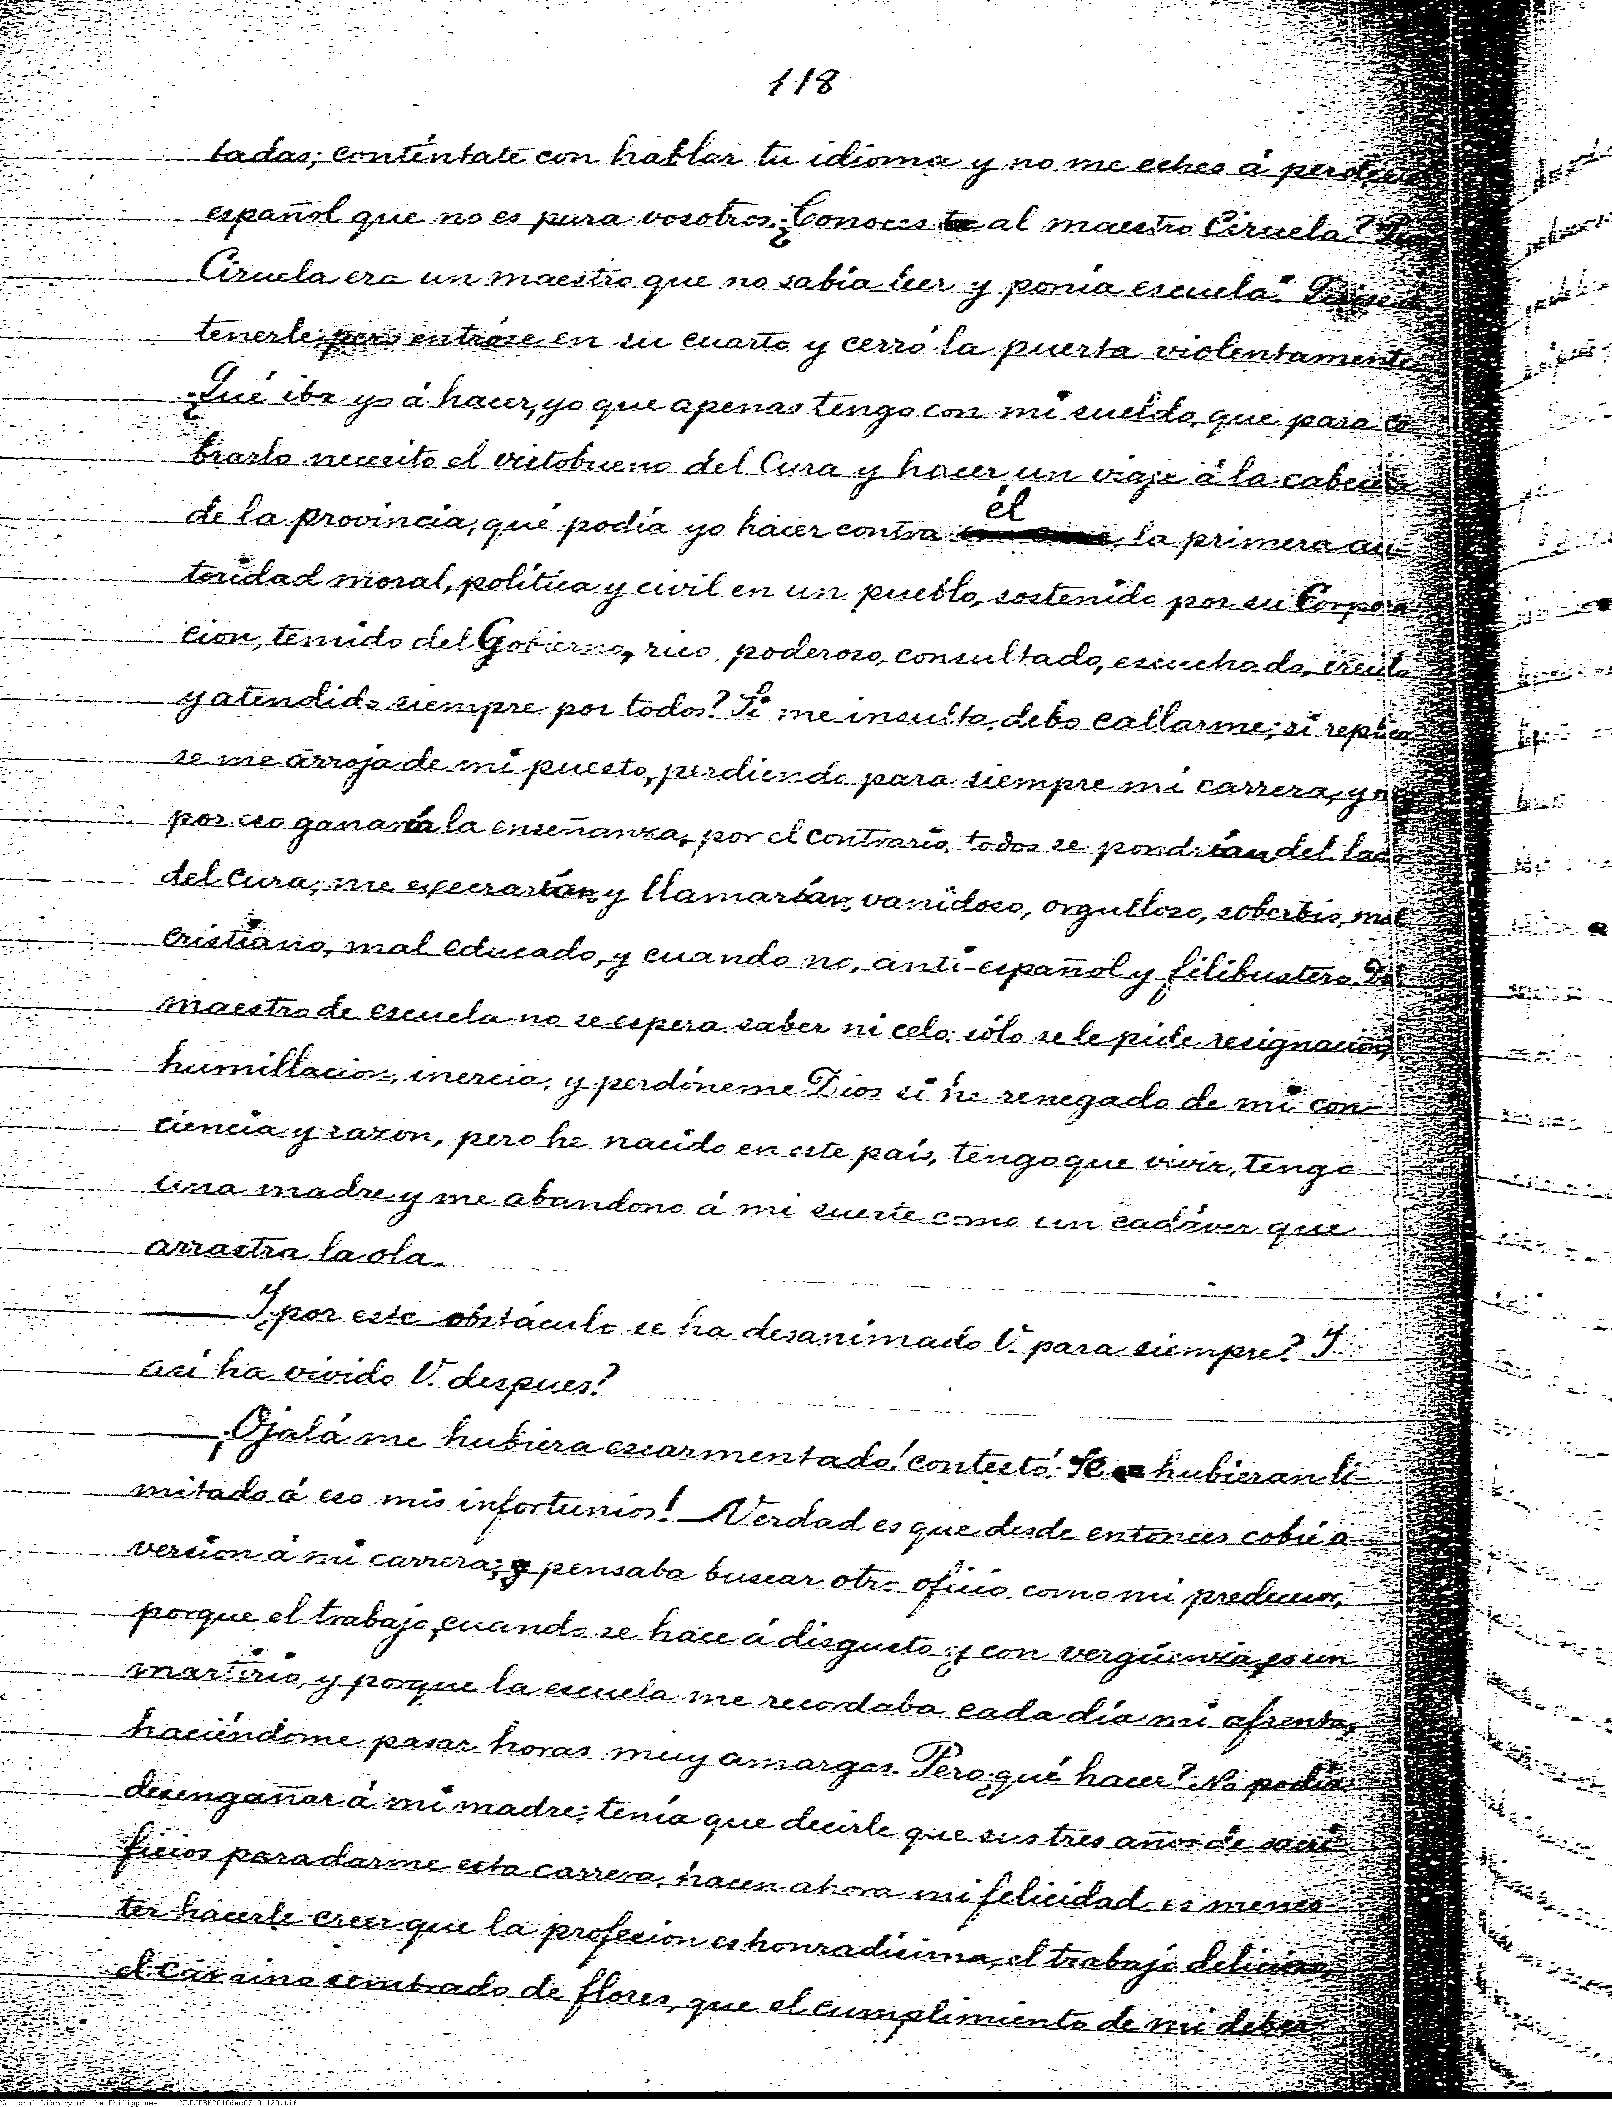 118
tadas; conténtate con hablar tu idioma y no me eches á perder
español que no es para vosotros. ¿Conoces al maestro Ciruela?
Ciruela era un maestro que no sabía leer y ponía escuela."
tenerle, pero entróse en su cuarto y cerró la puerta violentamente
¿Qué iba yo á hacer, yo que apenas tengo con mi sueldo, que para co-
brarlo necesito el vistobueno del Cura y hacer un viaje á la cabecera
de la provincia, qué podía yo hacer contra él, la primera au-
toridad moral, política y civil en un pueblo, sostenido por su Corpora-
cion, temido del Gobierno, rico, poderoso, consultado, escuchado, creido
y atendido siempre por todos? Si me insulta, debo callarme; si replico
se me arroja de mi puesto, perdiendo para siempre mi carrera, y
por eso ganaría la enseñanza, por el contrario, todos se pondrían del lado
del cura, me execrarían y llamarían, vanidoso, orgulloso, soberbio, mal
cristiano, mal educado, y cuando no, anti-español y filibustero. Del
maestro de escuela no se espera saber ni celo, sólo se le pide resignacion,
humillacion, inercia, y perdóneme Dios si he renegado de mi con-
ciencia y razon, pero he nacido en este país, tengo que vivir, tengo
una madre y me abandono á mi suerte como un cadáver que
arrastra la ola.
— Y ¿por este obstáculo se ha desanimado V. para siempre? Y
así ha vivido V. despues?
— ¡Ojalá me hubiera escarmentado! contestó. Se hubieran li-
mitado á eso mis infortunios! Verdad es que desde entonces cobré a-
version á mi carrera; pensaba buscar otro oficio como mi predecesor,
porque el trabajo, cuando se hace á disgusto y con vergüenza, es un
martirio, y porque la escuela me recordaba cada día mi afrenta,
haciéndome pasar horas muy amargas. Pero ¿qué hacer? No podía
desengañar á mi madre; tenía que decirle que sus tres años de sacri-
ficios para darme esta carrera, hacen ahora mi felicidad, es menes-
ter hacerle creer que la profesion es honradísima, el trabajo delicioso,
el camino sembrado de flores, que el cumplimiento de mi deber